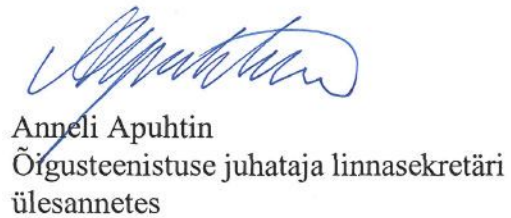 Anneli Apuhtin
Õigusteenistuse juhataja linnasekretäri
ülesannetes